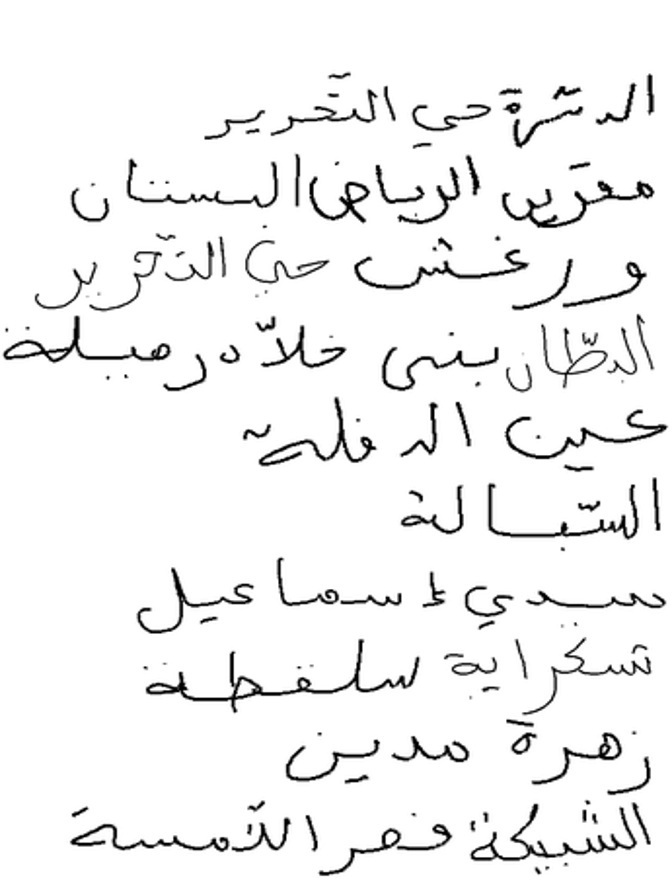 الدشرة حي التحرير
مقرين الرياض البستان
ورغش حي التحرير
البطان بني خلاد رميلة
عين الدفلة
السبالة
سيدي إسماعيل
سكراية سلقطة
زهرة مدين
الشبيكة قصر اللامسة